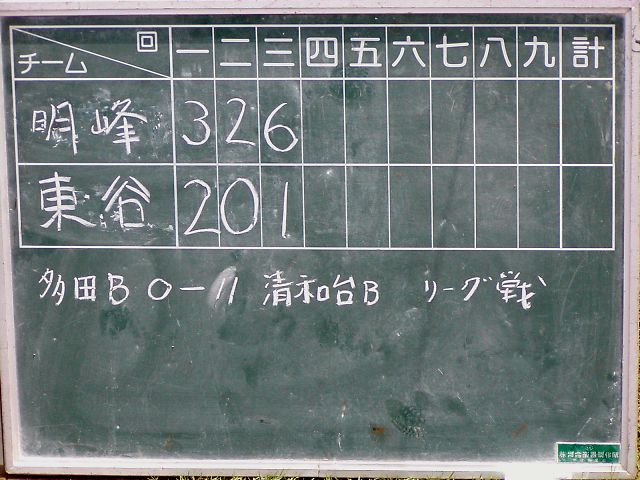 チーム 回 一 二 三 四 五 六 七 八 九 計
明峰 3 2 6
東谷 2 0 1
多田B 0-11 清和台B リーグ戦